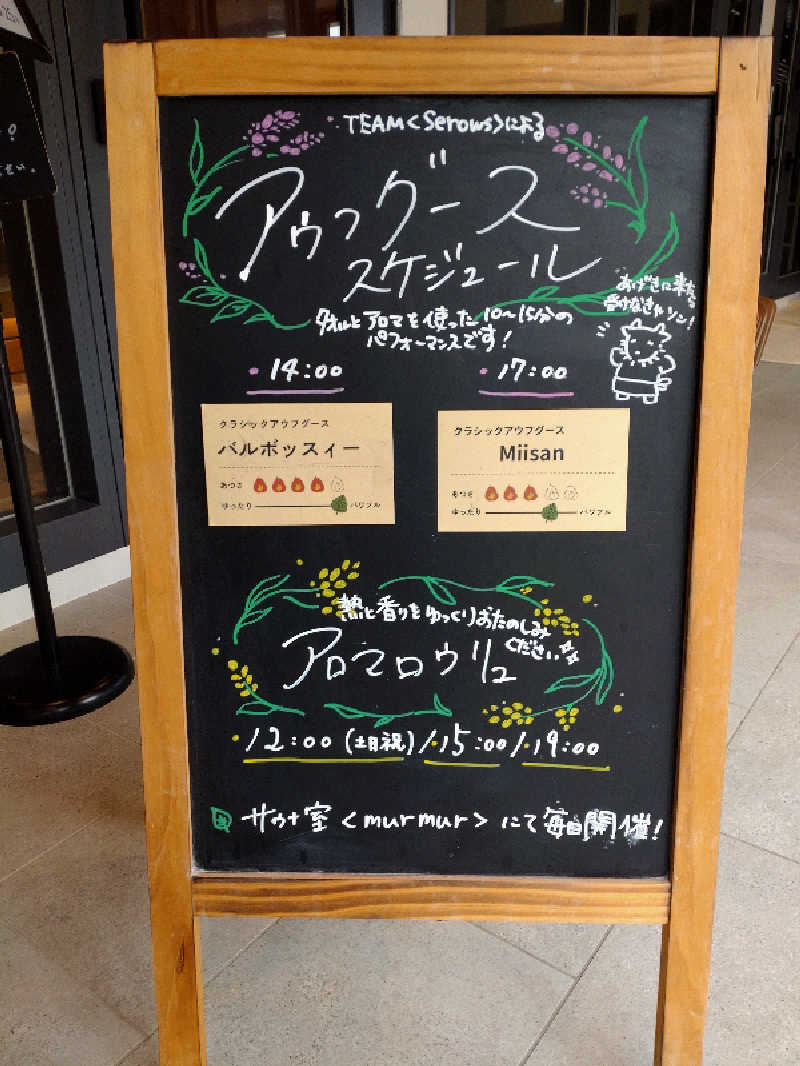 TEAM<Serows>による
アウフグース
スケジュール
タオルとアロマを使った10〜15分の
パフォーマンスです!
・14:00
・17:00
クラシックアウフグース
バルボッスィー
あつさ
ゆったり パワフル
クラシックアウフグース
Miisan
あつさ
ゆったり パワフル
熱と香りをゆっくりおたのしみ
ください
アロマロウリュ
・12:00(土日祝)/・15:00/・19:00
サウナ室<murmur>にて毎日開催!